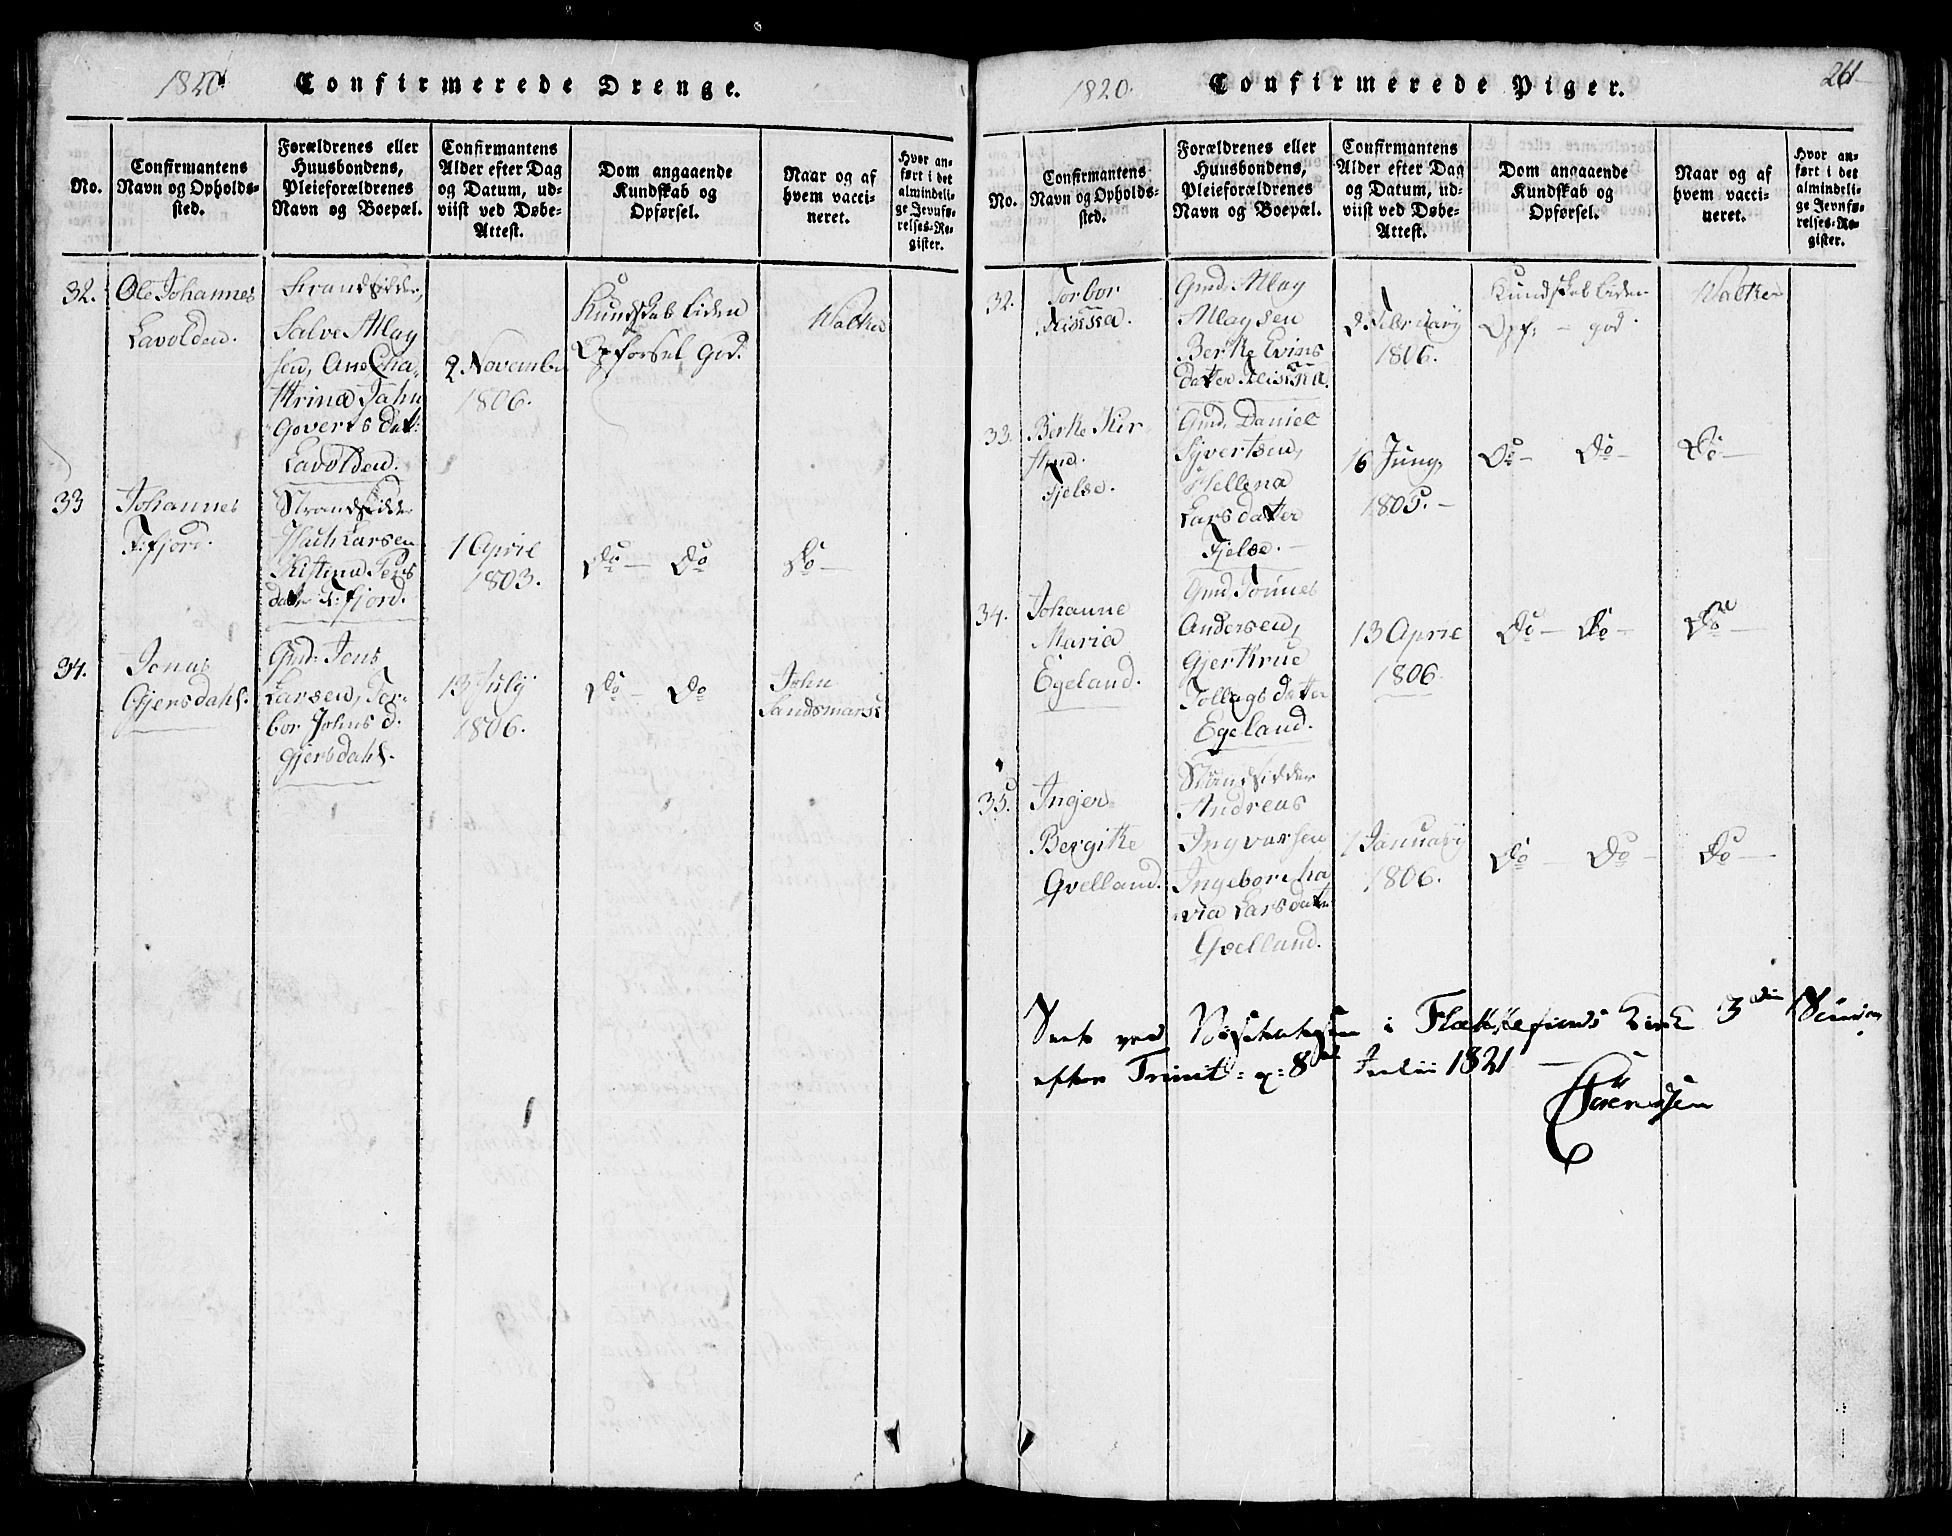 1820
Confirmerede Drenge.
No.
Confirmantens
Navn og Opholds-
sted.
Forældrenes eller
Huusbondens,
Pleieforældrenes
Navn og Boepæl.
Confirmantens
Alder efter Dag
og Datum, ud-
viist ved Døbe-
Attest.
Dom angaaende
Kundskab og
Opførsel.
Naar og af
hvem vacci-
neret.
Hvor an-
ført i det
almindeli-
ge Jevnfø-
relses-Re-
gister.
32.
Ole Johannes
Lavolden.
Strandsidder,
Salve Allag
sen, Ane Cha-
thrina Jahn
Goverts dat:
Lavolden.
2 November
1806.
Kundskab liden
Opførsel God.
Walker
33
Johannes
F:fjord.
Strandsidder
Larsen
Kistina Pers
datter F:fjord.
1 April
1803.
Do — Do
Do —
34.
Jonas
Gjersdahl.
Gmd. Jons
Larsen, Tor-
bor Johns d.
Gjersdahl.
13 Julij
1806.
Do — Do
John
Sandsmark
1820.
Confirmerede Piger.
261
No.
Confirmantens
Navn og Opholds-
sted.
Forældrenes eller
Huusbondens,
Pleieforældrenes
Navn og Boepæl.
Confirmantens
Alder efter Dag
og Datum, ud-
viist ved Døbe-
Attest.
Dom angaaende
Kundskab og
Opførsel.
Naar og af
hvem vacci-
neret.
Hvor an-
ført i det
almindeli-
ge Jevnfø-
relses-Re-
gister.
32.
Torbor
Gmd. Allag
Allagsen
Berthe Evins
datter
2 Februarij
1806.
Kundskab liden
Opf: — god.
Walker
33.
Berthe Kir-
stine
Fjelse.
Gmd. Daniel
Syvertsen,
Hellena
Larsdatter
Fjelse. —
16 Junij
1805. —
Do — Do —
Do —
34.
Johanne
Maria
Egeland.
Gmd. Tønnes
Andersen,
Gjertrue
Tollags datter
Egeland.
13 April
1806.
Do — Do —
Do —
35.
Inger
Bergithe
Gvelland.
Strandsidder
Andreas
Ingvarsen
Ingebor Cha
via Larsdatter
Gvelland.
1 Januarij
1806.
Do — Do —
Do —
ved i Flekkefiords Kirke 3die
efter Trinit: d: 8de Julii 1821 —
Sørensen